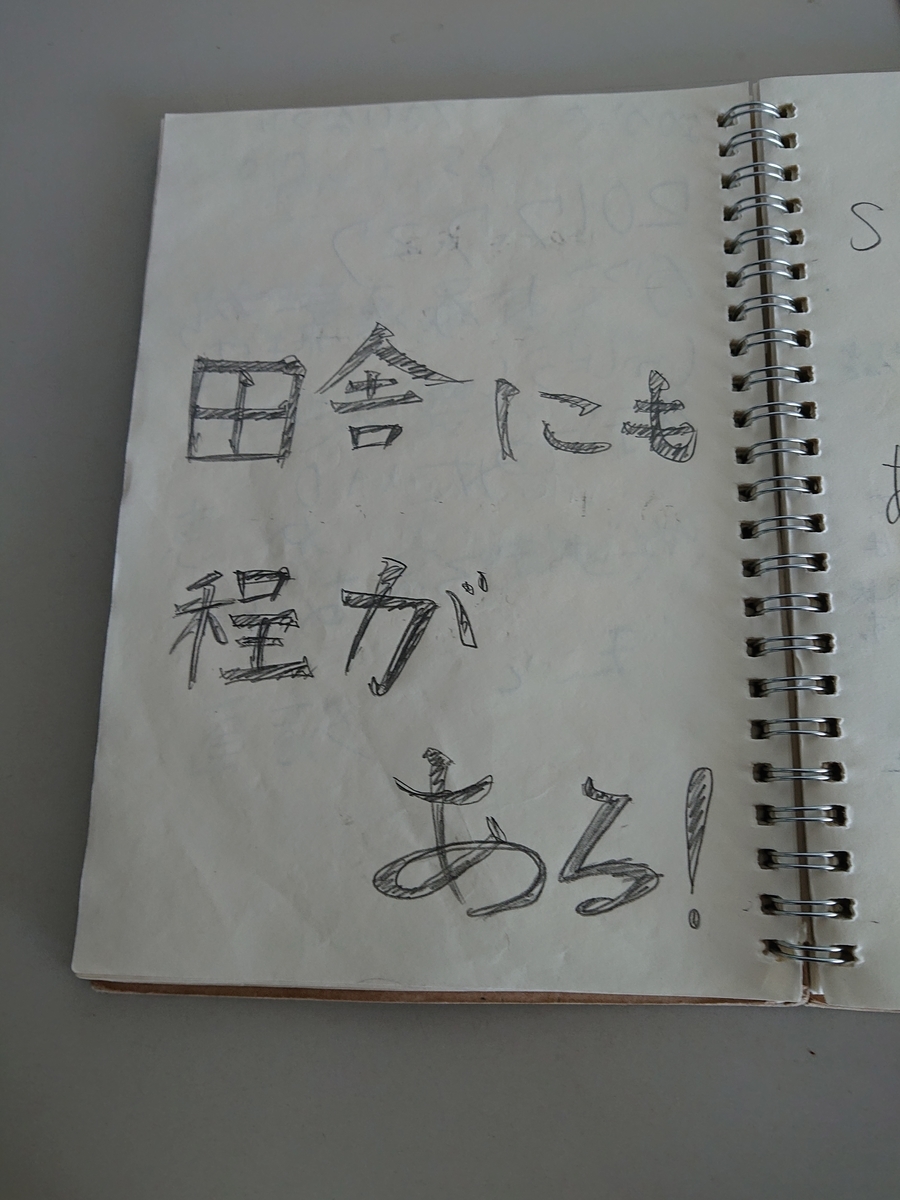 田舎にも
程が
ある!
S